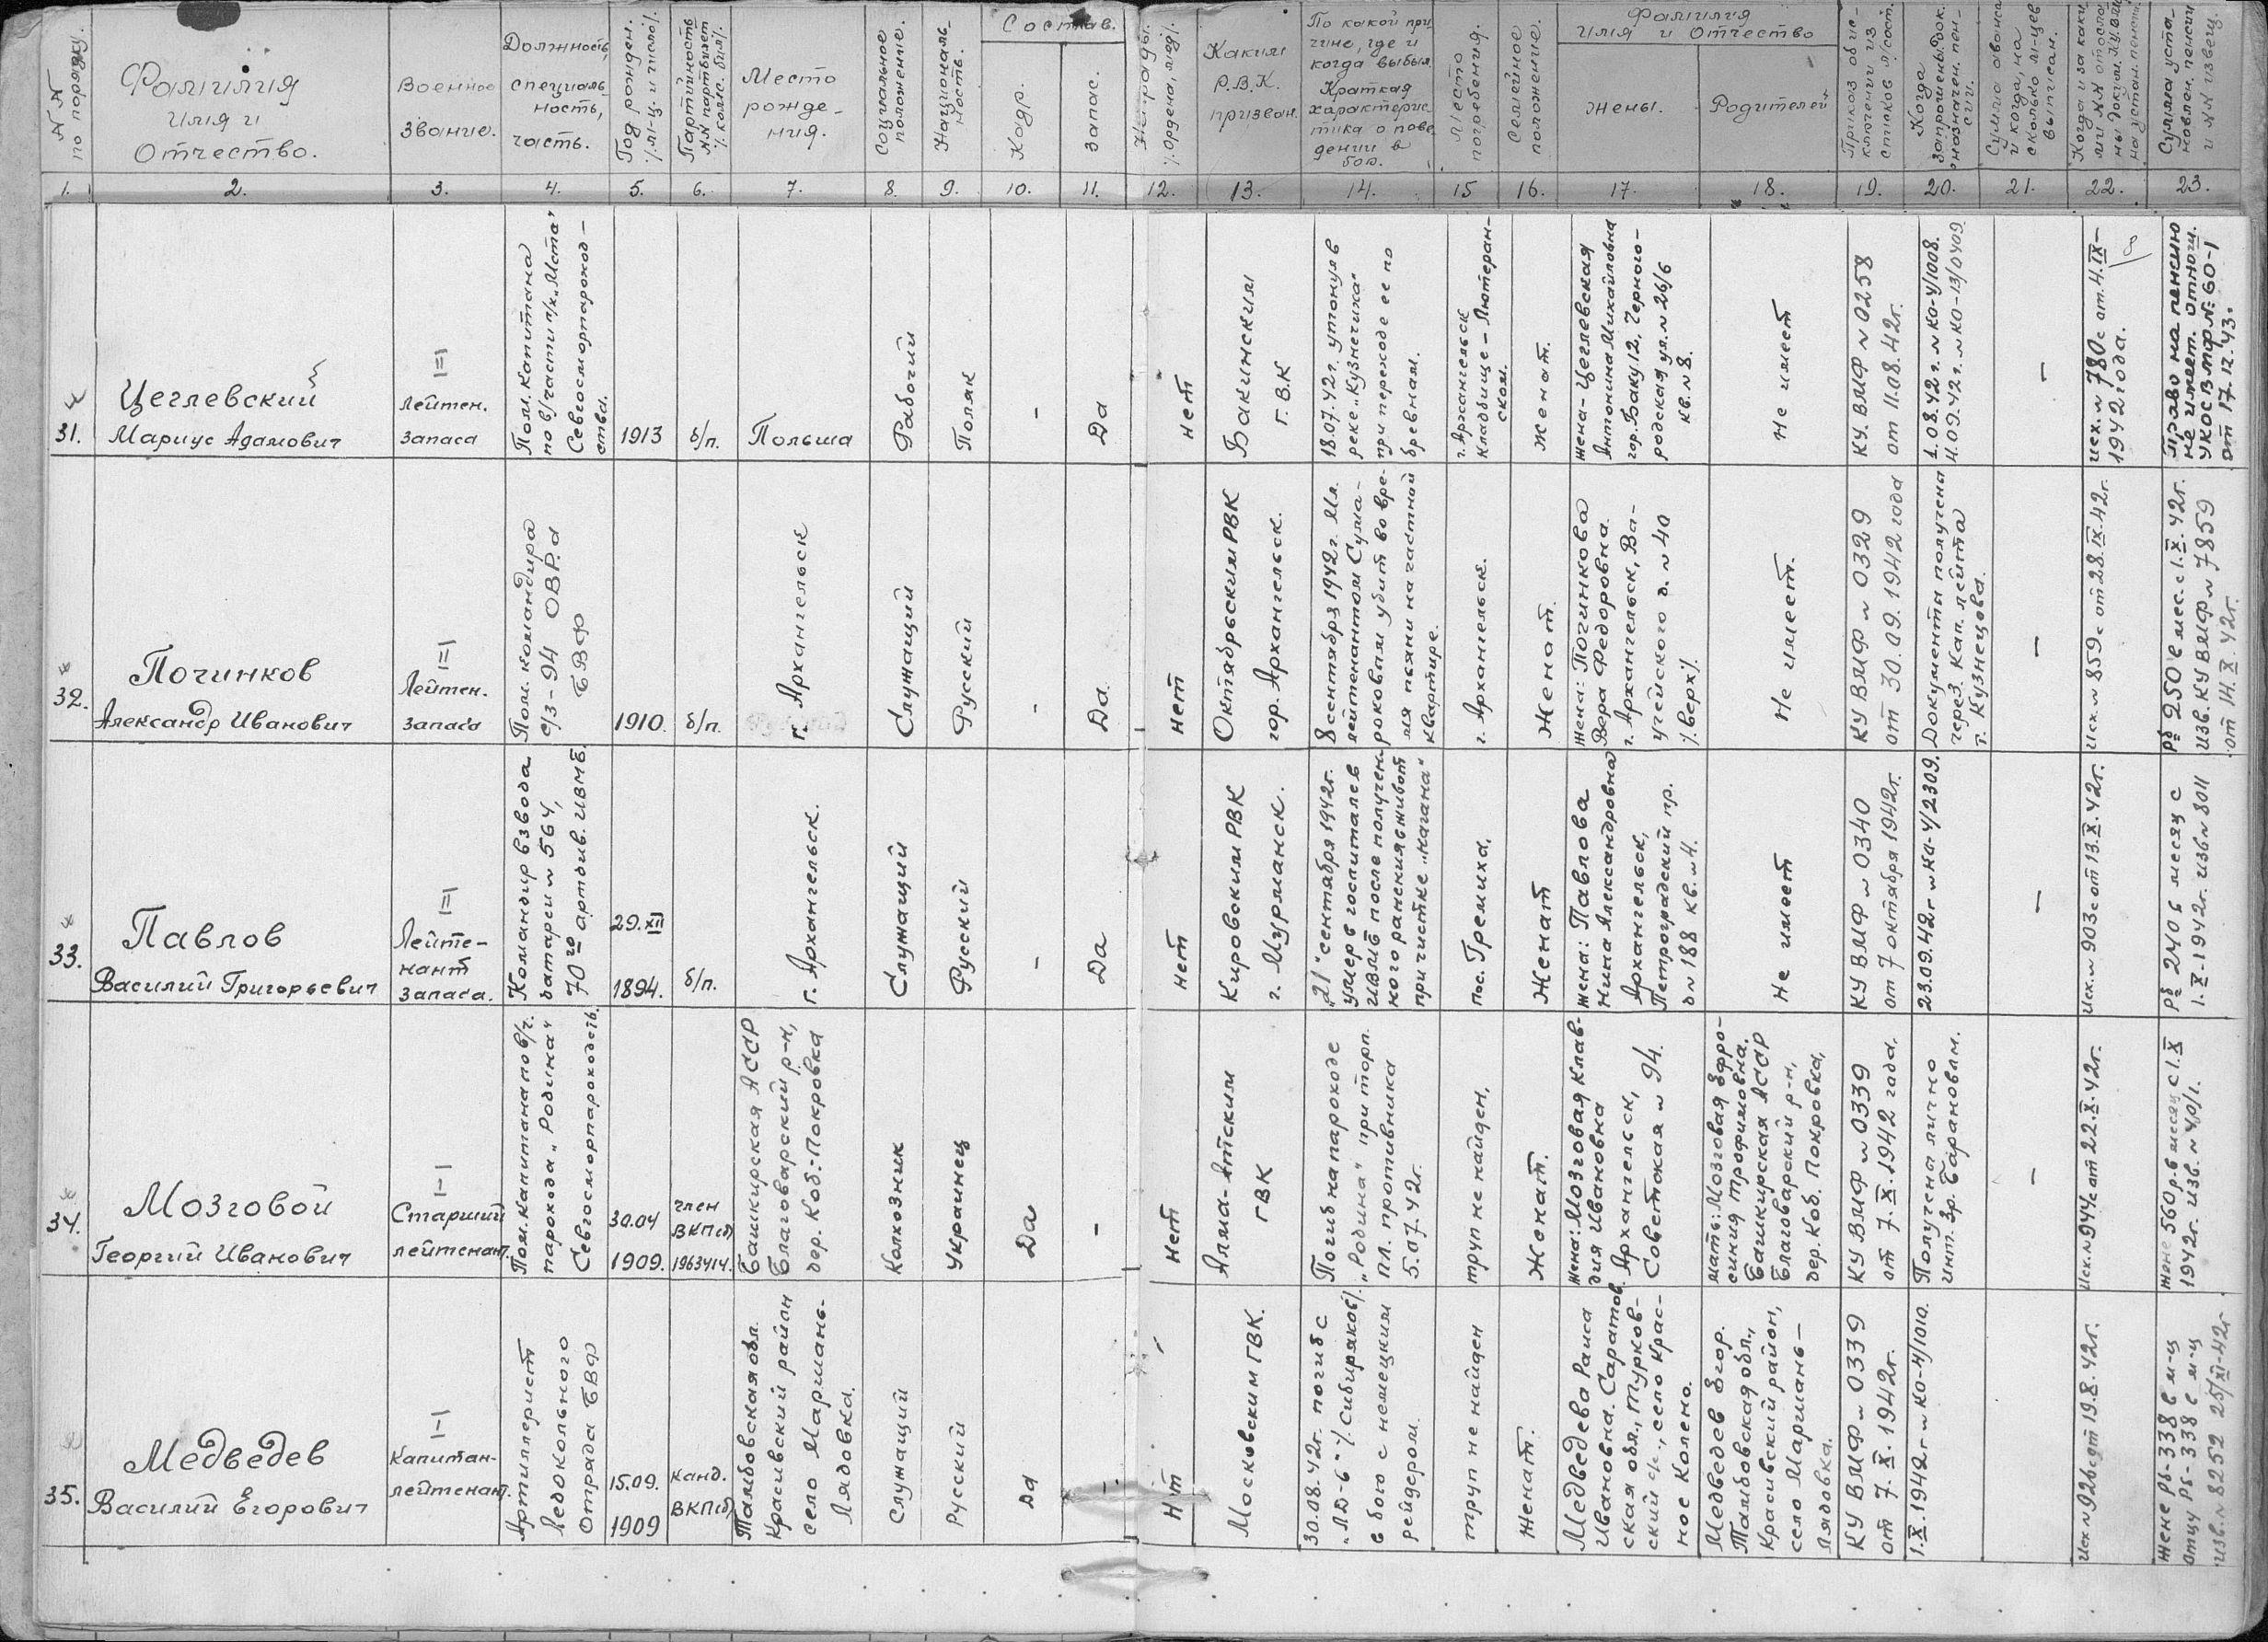 №№ по порядку.
Фамилия
имя и
Отчество.
Военное
звание.
Должность,
специаль-
ность,
часть.
Год рожден.
/м-ц и число/.
Партийность
№№ партбилет
/. комс. бил/.
Место
рожде-
ния.
Социальное
положение.
Националь-
ность.
Состав.
Кадр.
Запас.
Награды.
/.ордена, мед/.
Каким
Р.В.К.
призван.
По какой при-
чине, где и
когда выбыл.
Краткая
характерис-
тика о пове-
дении в
бою.
Место
погребения.
Семейное
положение.
Фамилия
имя и Отчество
Жены.
Родителей
Приказ об ис-
ключении из
списков л/сост.
Когда
запрошены док.
назначен. пен-
сии.
Сумма аванса
и когда, на
сколько м-цев
выписан.
Когда и за каки
ми №№ отосла
ны докум.
на устан. пенсии
Сумма уста-
новлен. пенсии
и №№ извещ.
1. 2. 3. 4. 5. 6. 7. 8. 9. 10. 11. 12. 13. 14. 15 16. 17. 18. 19. 20. 21. 22. 23.
31.
Цеглевский
Мариус Адамович
Лейтен.
запаса
Пом. капитана
по в/части п/х „Мста"
Севгосморпароход-
ства.
1913
б/п.
Польша
Рабочий
Поляк
-
Да
нет
Бакинским
Г.В.К
18.07.42г. утонул в
реке „Кузнечиха"
при переходе ее по
бревнам.
г. Архангельск
Кладбище - Лютеран-
ском.
Женат.
жена- Цеглевская
Антонина Михайловна
гор. Баку 12, Черного-
родская ул. № 26/6
кв. № 8.
Не имеет
КУ. ВМФ № 0258
от 11.08.42г.
1.08.42г. № КО-4/1008.
4.09.42г. № КО-13/0409
-
исх. № 780с от. 4.IX-
1942 года.
Право на пенсию
не имеет. отнош.
УКОС ВМФ № 60-1
от 17.12.43.
32.
Починков
Александр Иванович
Лейтен.
запаса
Пом. командира
с/з - 94 ОВР.а
БВФ
1910.
б/п.
г. Архангельск
Служащий
Русский
-
Да.
Нет
Октябрьским РВК
гор. Архангельск.
8 сентября 1942г. Мл.
лейтенантом Сума-
роковым убит во вре-
мя пьянки на частной
квартире.
г. Архангельск.
Женат.
Жена: Починкова
Вера Федоровна.
г. Архангельск, Ва-
учейского д. № 40
/.верх/.
Не имеет.
КУ ВМФ № 0329
от 30.09.1942 года
Документы получены
через Кап. лейт-та
т. Кузнецова.
-
Исх. № 859с от 28.IX.42г.
Рб 250 в мес. с 1.X.42г.
изв. КУ ВМФ № 7859
от 14.X.42г.
33.
Павлов
Василий Григорьевич
Лейте-
нант
запаса.
Командир взвода
батареи № 564,
70го артдив. ИВМБ.
29.XII
1894.
б/п.
г. Архангельск.
Служащий
Русский
-
Да
Нет
Кировским РВК
г. Мурманск.
„21" сентября 1942г.
умер в госпитале в
ИВМБ после получен
ного ранения в живот
при чистке „нагана"
пос. Гремиха,
Женат
жена: Павлова
Нина Александровна
Архангельск,
Петроградский пр.
д № 188 кв. № 4.
Не имеет
КУ ВМФ № 0340
от 7 октября 1942г.
23.09.42г № КА-4/2309.
-
Исх. № 903с от 13.X.42г.
Рб 240 в месяц с
1.X-1942г. изв № 8011
34.
Мозговой
Георгий Иванович
Старший
лейтенант.
Пом. капитана по в/ч.
парохода „Родина"
Севгосморпароходств.
30.04
1909.
член
ВКП(б)
1963414.
Башкирская АССР
Благоварский р-н,
дер. Коб-Покровка
Колхозник
Украинец
Да
-
Нет
Алма-Атским
ГВК
Погиб на пароходе
„Родина" при торп.
пл. противника
5.07.42г.
труп не найден,
Женат.
Жена: Мозговая Клав-
дия Ивановна
Архангельск,
Советская № 94.
мать: Мозговая Ефро-
синия Трофимовна.
Башкирская АССР
Благоварский р-н,
дер. Коб. Покровка,
КУ ВМФ № 0339
от 7.X.1942 года.
Получены лично
инт. 3р. Барановым.
-
Исх. № 944с от 22.X.42г.
жене 560 р. в месяц с 1.X
1942г. изв. № 40/1.
35.
Медведев
Василий Егорович
Капитан-
лейтенант.
Артиллерист
Ледокольного
Отряда БВФ
15.09.
1909
канд.
ВКП(б)
Тамбовская обл.
Красивский район
село Маримань-
Лядовка.
Служащий
Русский
Да
-
Нет
Московским ГВК.
30.08.42г. погиб с
„ЛД-6" /.Сибиряков/.
в бою с немецким
рейдером.
труп не найден
Женат.
Медведева Раиса
Ивановна. Саратов
ская обл., Турков-
ский с/с., село Крас-
ное Колено.
Медведев Егор.
Тамбовская обл.,
Красивский район,
село Маримань-
Лядовка.
КУ ВМФ № 0339
от 7.X.1942г.
1.X.1942г № КО-4/1010.
Исх № 926с от 19.X.42г.
жене Рб-338 в м-ц
отцу Рб-338 в м-ц
изв. № 8252 25/XI-42г